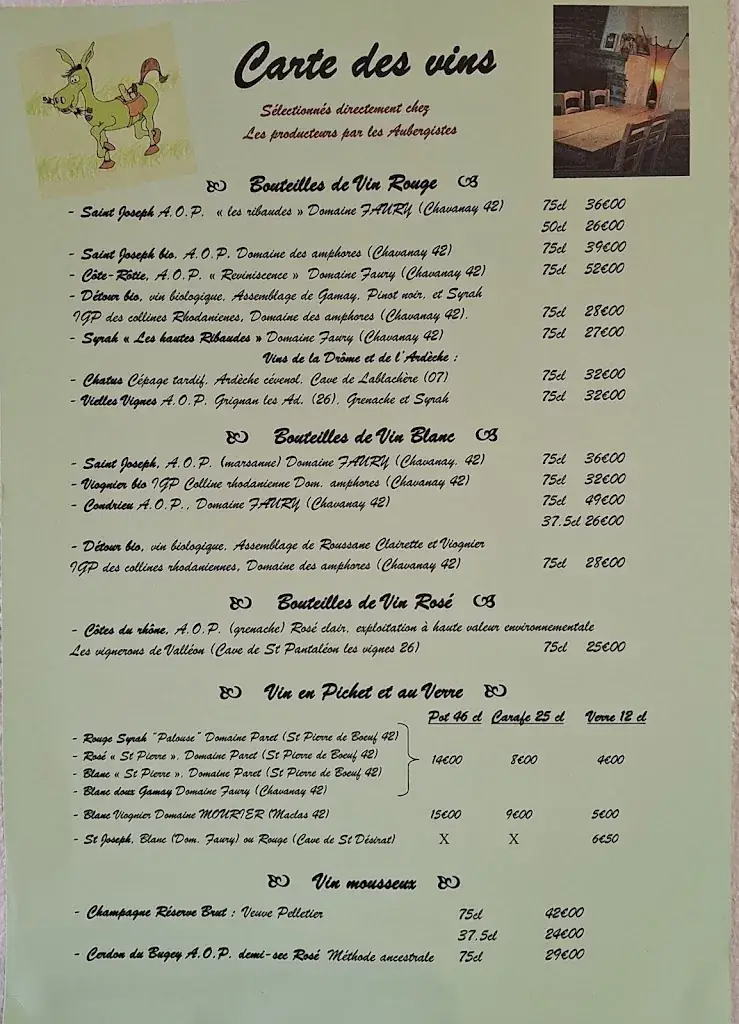 Carte des vins
Sélectionnés directement chez
Les producteurs par les Aubergistes
Bouteilles de Vin Rouge
- Saint Joseph A.O.P. « les ribaudes » Domaine FAURY (Chavanay 42) 75cl 36€00
50cl 26€00
- Saint Joseph bio, A.O.P. Domaine des amphores (Chavanay 42) 75cl 39€00
- Côte-Rôtie, A.O.P. « Reviniscence » Domaine Faury (Chavanay 42) 75cl 52€00
- Détour bio, vin biologique, Assemblage de Gamay, Pinot noir, et Syrah
IGP des collines Rhodanienes, Domaine des amphores (Chavanay 42). 75cl 28€00
- Syrah « Les hautes Ribaudes » Domaine Faury (Chavanay 42) 75cl 27€00
Vins de la Drôme et de l'Ardèche :
- Chatus Cépage tardif, Ardèche cévenol, Cave de Lablachère (07) 75cl 32€00
- Vielles Vignes A.O.P. Grignan les Ad. (26), Grenache et Syrah 75cl 32€00
Bouteilles de Vin Blanc
- Saint Joseph, A.O.P. (marsanne) Domaine FAURY (Chavanay, 42) 75cl 36€00
- Viognier bio IGP Colline rhodanienne Dom. amphores (Chavanay 42) 75cl 32€00
- Condrieu A.O.P., Domaine FAURY (Chavanay 42) 75cl 49€00
37.5cl 26€00
- Détour bio, vin biologique, Assemblage de Roussane Clairette et Viognier
IGP des collines rhodaniennes, Domaine des amphores (Chavanay 42) 75cl 28€00
Bouteilles de Vin Rosé
- Côtes du rhône, A.O.P. (grenache) Rosé clair, exploitation à haute valeur environnementale
Les vignerons de Valléon (Cave de St Pantaléon les vignes 26) 75cl 25€00
Vin en Pichet et au Verre
Pot 46 cl Carafe 25 cl Verre 12 cl
- Rouge Syrah "Palouse" Domaine Paret (St Pierre de Boeuf 42)
- Rosé « St Pierre », Domaine Paret (St Pierre de Boeuf 42) 14€00 8€00 4€00
- Blanc « St Pierre », Domaine Paret (St Pierre de Boeuf 42)
- Blanc doux Gamay Domaine Faury (Chavanay 42)
- Blanc Viognier Domaine MOURIER (Maclas 42) 15€00 9€00 5€00
- St Joseph, Blanc (Dom. Faury) ou Rouge (Cave de St Désirat) X X 6€50
Vin mousseux
- Champagne Réserve Brut : Veuve Pelletier 75cl 42€00
37.5cl 24€00
- Cerdon du Bugey A.O.P. demi-sec Rosé Méthode ancestrale 75cl 29€00